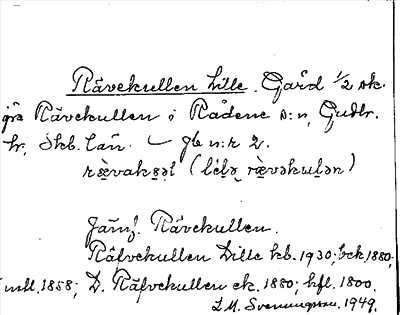 Rävekullen Lille. Gård 1/2 sk.
från Rävekullen i Rådene s:n, Gudh.
hr, Skb. län. – gb n:r 2.
Jämf. Rävekullen.
Räfvekullen Lille kb. 1930; bck. 1880;
mtl. 1858; D. Räfvekullen ek. 1880; hfl. 1800.
L M. Svenungsson. 1949.